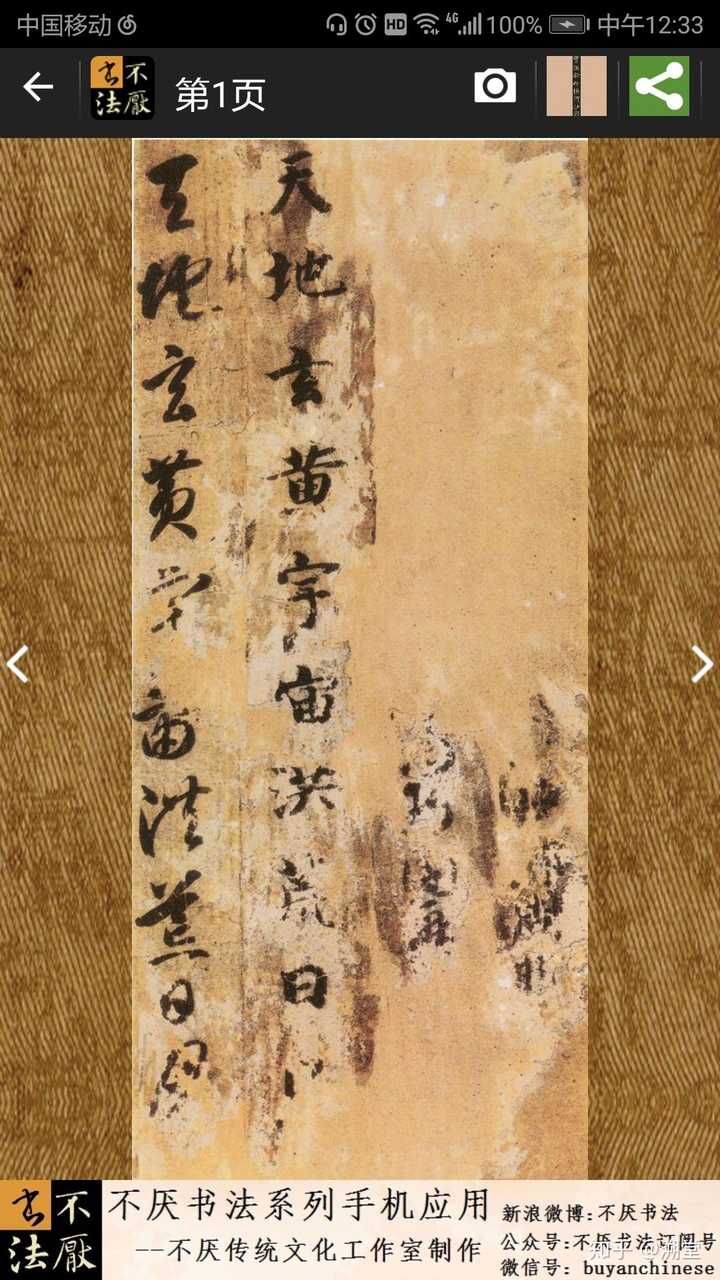 中国移动 HD 4G 100% 中午12:33
不厭书法 第1页
天地玄黄宇宙洪荒日
天地玄黄宇宙洪荒日
不厭书法
不厌书法系列手机应用
--不厌传统文化工作室制作
新浪微博:不厌书法
公众号:不厌书法订阅号
微信号: buyanchinese
知乎